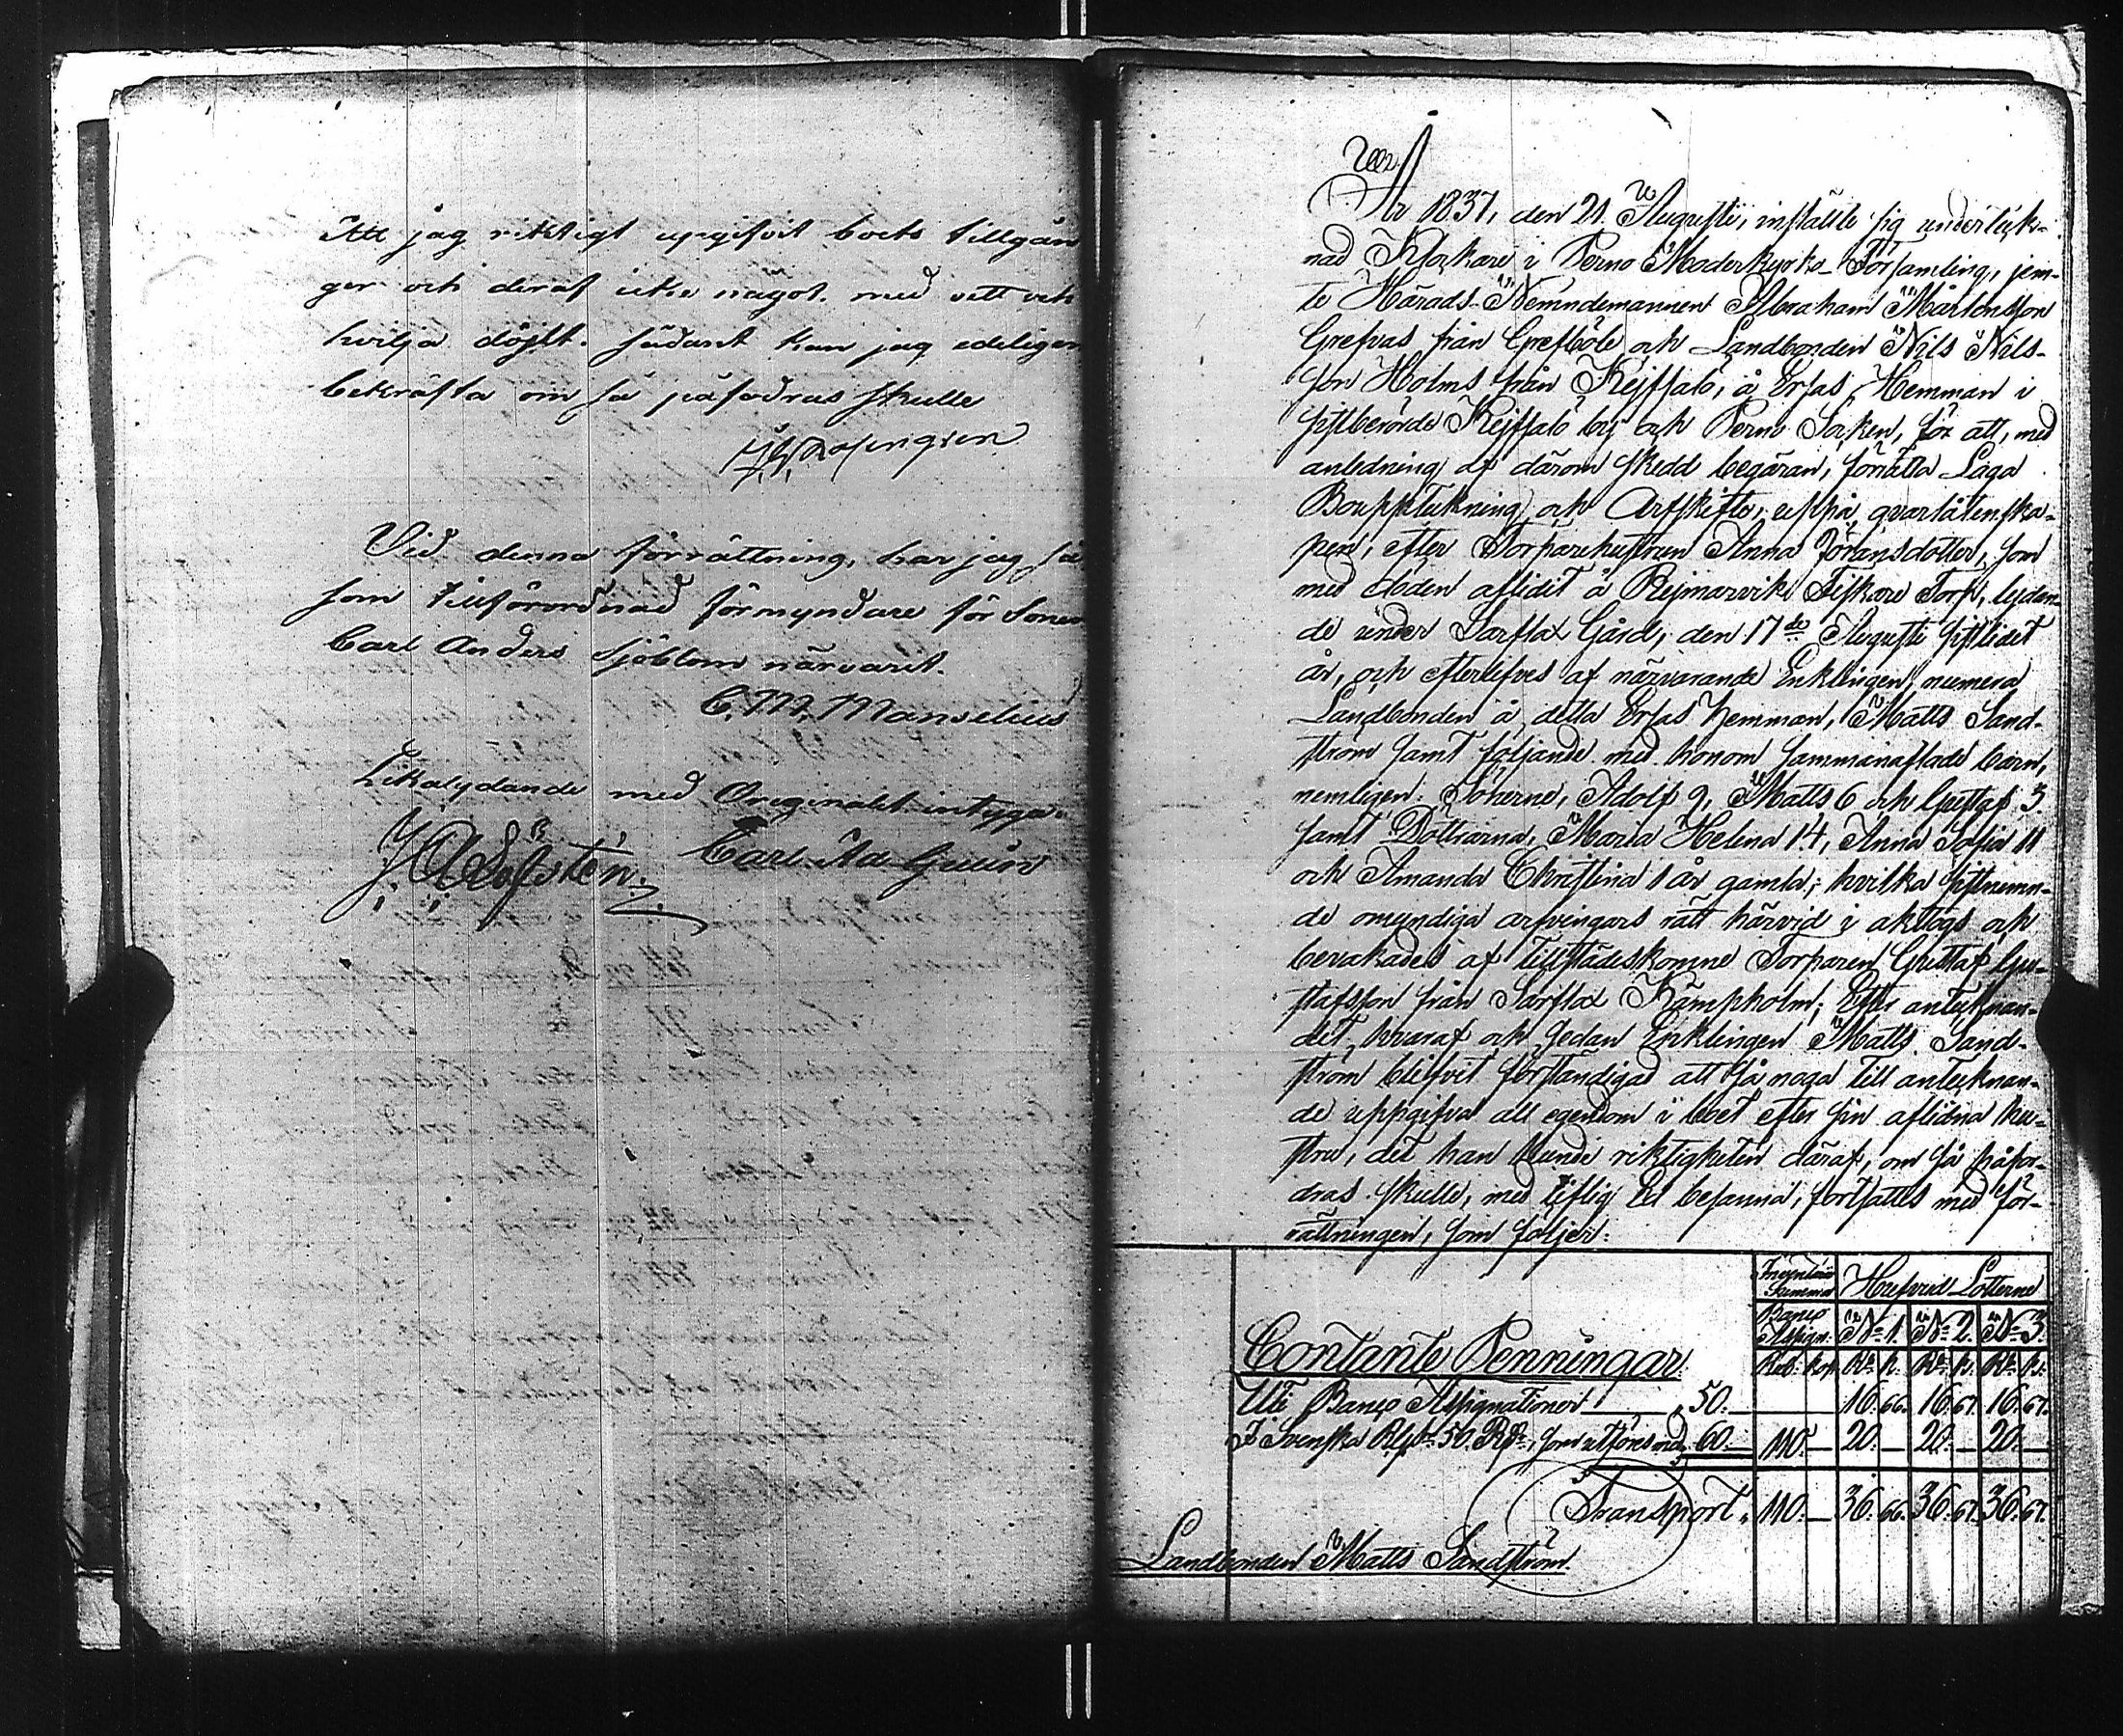 Att jag riktigt uppgifvit boets tillgån
gar och deraf icke något med vett och
hvilja döljt. sådant kan jag edeligen
bekräfta om så påfodras skulle
Vid denna förrättning, har jag så
som tillförordnad förmyndare för Sonen
Carl Anders Sjöblom närvarit.
C. M. Manselius
Likalydande med Originalet intyga:
Carl Ad
År 1837, den 21 Augusti, instälte sig underteck-
nad Klockare i Perno Moderkyrko-Församling, jem-
te Härads-Nemndemannen Abraham Mårtensson
Grefvas från Grefböle och Landbonden Nils Nils-
son Holms från Kejssalö, å Ersas Hemman i
sistberörde Kejssalö by och Perno Socken, för att, med
anledning af därom skedd begäran, förrätta Laga
Bouppteckning och Arfskifte, uppå qvarlåtenska-
pen, efter Torparehustrun Anna Jöransdotter, som
med döden aflidit å Rejmarsvik Fiskare Torp, lyden-
de under Sarflax Gård, den 17de Augusti sistlidet
år, och efterlefves af närvarande Enklingen, numera
Landbonden å detta Ersas Hemman, Matts Sand-
ström samt följande med honom sammanaflade barn,
nemligen: Sönerne, Adolf 9, Matts 6 och Gustaf 3
samt Döttrarna, Maria Helena 14, Anna Sofia 11
och Amanda Christina 1 år gamla; hvilka sistnemn-
de omyndiga arfvingars rätt härvid i akttogs och
bevakades af tillstädeskomne Torparen Gustaf Gu-
stafsson från Sarflax Kämpholm; Efter antecknan-
det hvaraf och sedan Enklingen Matts Sand-
ström blifvit förständigad att så noga till antecknan-
de uppgifva all egendom i boet efter sin aflidna hu-
stru, det han kunde riktigheten däraf, om så påfor-
dras skulle, med liflig Ed besanna, fortsattes med för-
rättningen, som följer:
Summa Hufvud Lotterne
Banco Assign: No 1. No 2. No 3.
Contante Penningar. Rub: kop. Rb. k. Rb. k. Rb. k.
Uti Banco Assignationer 50. 16. 66. 16. 67. 16. 67.
I Svenska Rgs 50 Rdr, som utföres med 60. 110. — 20. — 20. — 20. —
Transport. 110. — 36. 66. 36. 67. 36. 67.
Landbonden Matts Sandström.